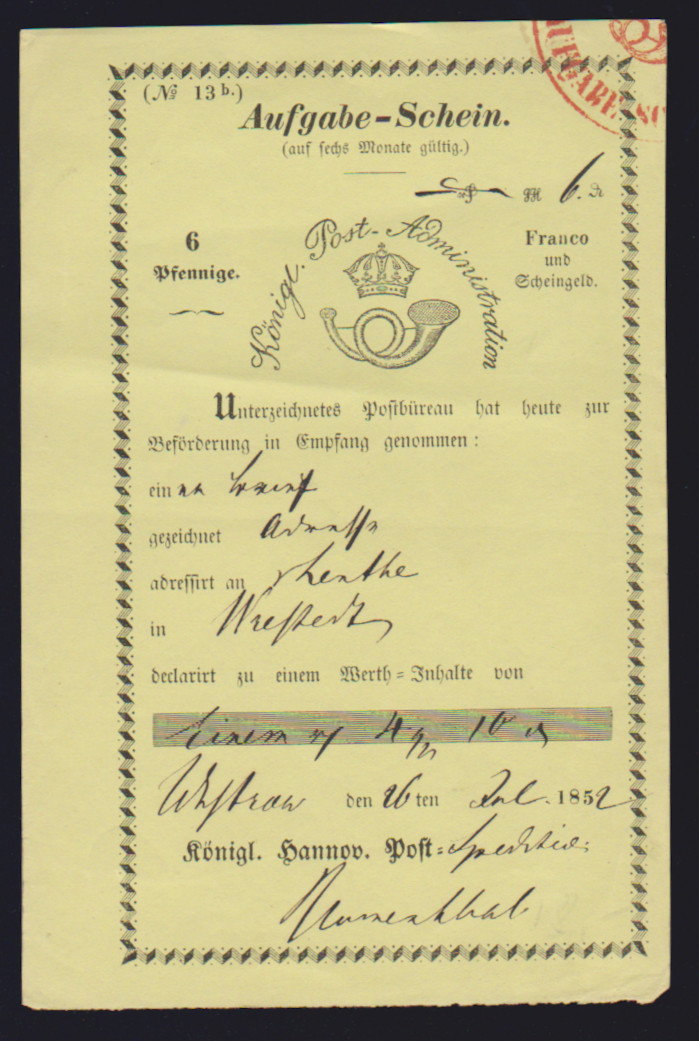 (№ 13 b.)
Aufgabe-Schein.
(auf sechs Monate gültig.)
6.
6
Pfennige.
Franco
und
Scheingeld.
Königl. Post-Administration
Unterzeichnetes Postbüreau hat heute zur
Beförderung in Empfang genommen:
einen Brief
gezeichnet Adresse
adressirt an
in Wrestedt
declarirt zu einem Werth-Inhalte von
Einem 4 10
den 26ten Jul. 1852
Königl. Hannov. Post-Spedition
Blumenthal